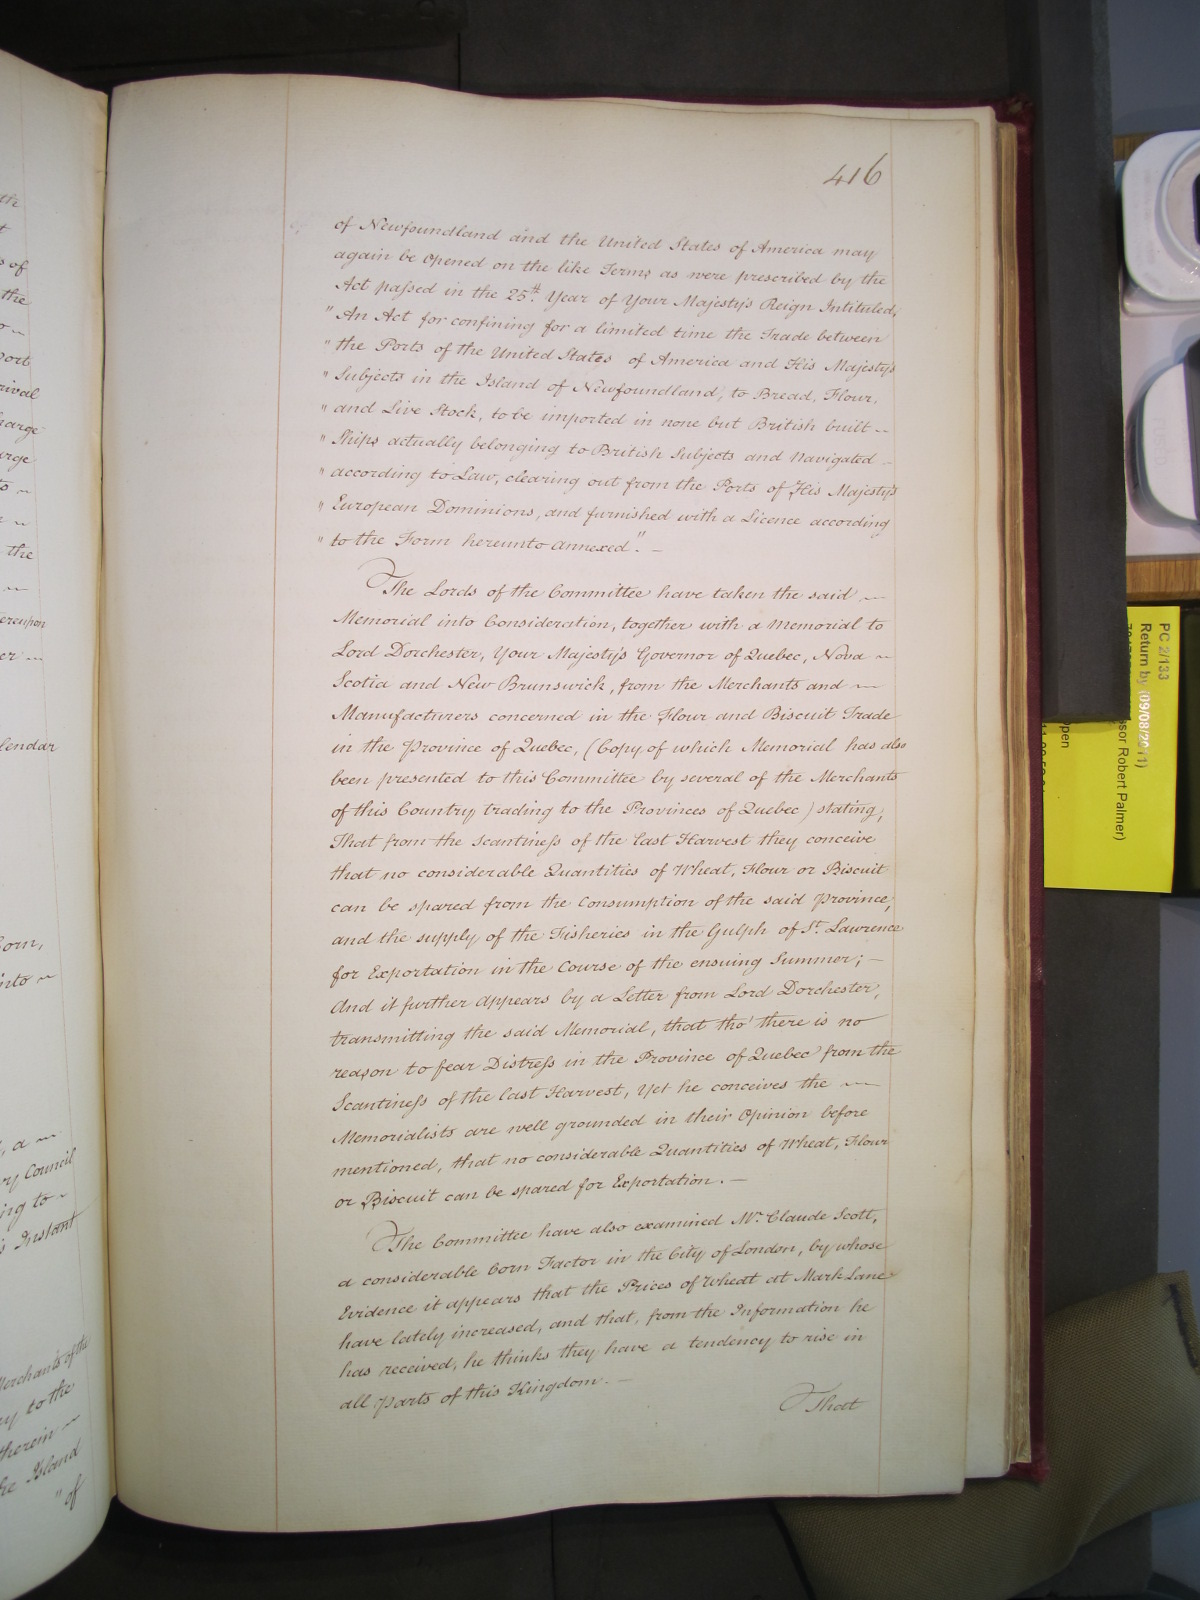 416
of Newfoundland and the United States of America may
again be opened on the like Terms as were prescribed by the
Act passed in the 25th. Year of Your Majesty's Reign Intituled,
" An Act for confining for a limited time the Trade between
" the Ports of the United States of America and His Majesty's
" Subjects in the Island of Newfoundland, to Bread, Flour,
" and Live Stock, to be imported in none but British built
" Ships actually belonging to British Subjects and Navigated
" according to Law, clearing out from the Ports of His Majesty's
" European Dominions, and furnished with a Licence according
" to the Form hereunto annexed". —
The Lords of the Committee have taken the said
Memorial into Consideration, together with a Memorial to
Lord Dorchester, Your Majesty's Governor of Quebec, Nova
Scotia and New Brunswick, from the Merchants and
Manufacturers concerned in the Flour and Biscuit Trade
in the Province of Quebec, (Copy of which Memorial has also
been presented to this Committee by several of the Merchants
of this Country trading to the Provinces of Quebec) stating,
That from the Scantiness of the last Harvest they conceive
that no considerable Quantities of Wheat, Flour or Biscuit
can be spared from the Consumption of the said Province,
and the supply of the Fisheries in the Gulph of St. Lawrence
for Exportation in the Course of the ensuing Summer; —
And it further appears by a Letter from Lord Dorchester,
transmitting the said Memorial, that tho' there is no
reason to fear Distress in the Province of Quebec from the
Scantiness of the last Harvest, Yet he conceives the
Memorialists are well grounded in their Opinion before
mentioned, that no considerable Quantities of Wheat, Flour
or Biscuit can be spared for Exportation. —
The Committee have also examined Mr. Claude Scott,
a considerable Corn Factor in the City of London, by whose
Evidence it appears that the Prices of Wheat at Mark Lane
have lately increased, and that, from the Information he
has received, he thinks they have a tendency to rise in
all Parts of this Kingdom. —
That
s of
the
port
rival
harge
the
ereupon
lendar
Corn,
nto
, a
ry Council
ing to
s Instant
Merchants of the
ry to the
therein
he Island
" of
PC 2/133
Return by (09/08/2011)
ssor Robert Palmer)
open